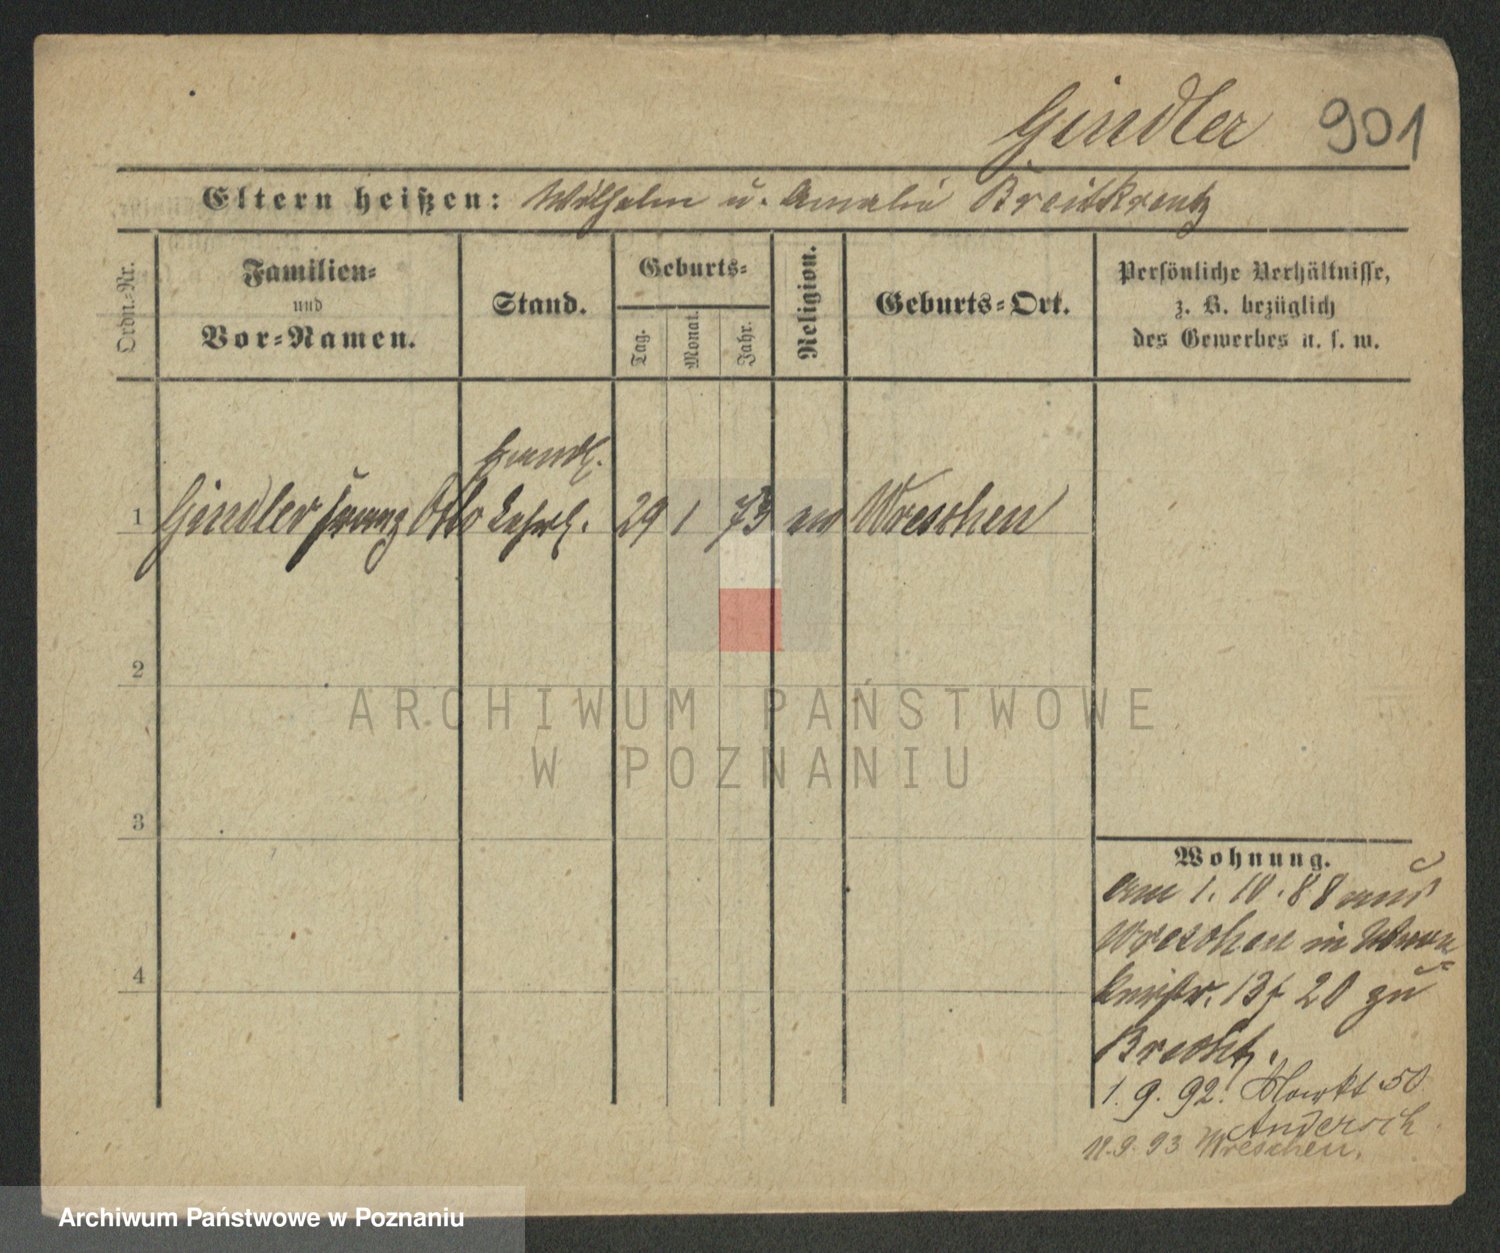 Gindler 901
Eltern heißen: Wilhelm u. Amalie Breitkreutz
Ordn.-Nr.
Familien-
und
Vor-Namen.
Stand.
Geburts-
Tag.
Monat.
Jahr.
Religion.
Geburts-Ort.
Persönliche Verhältnisse,
z. B. bezüglich
des Gewerbes u. s. w.
Handl.
1 Gindler Franz Otto Lehrl. 29 1 73 ev Wreschen
2
3
4
ARCHIWUM PAŃSTWOWE
W POZNANIU
Wohnung.
am 1.10.88 aus
Wreschen in
20 zu
1.9.92. Markt 50
Andersch
11.9.93 Wreschen.
Archiwum Państwowe w Poznaniu